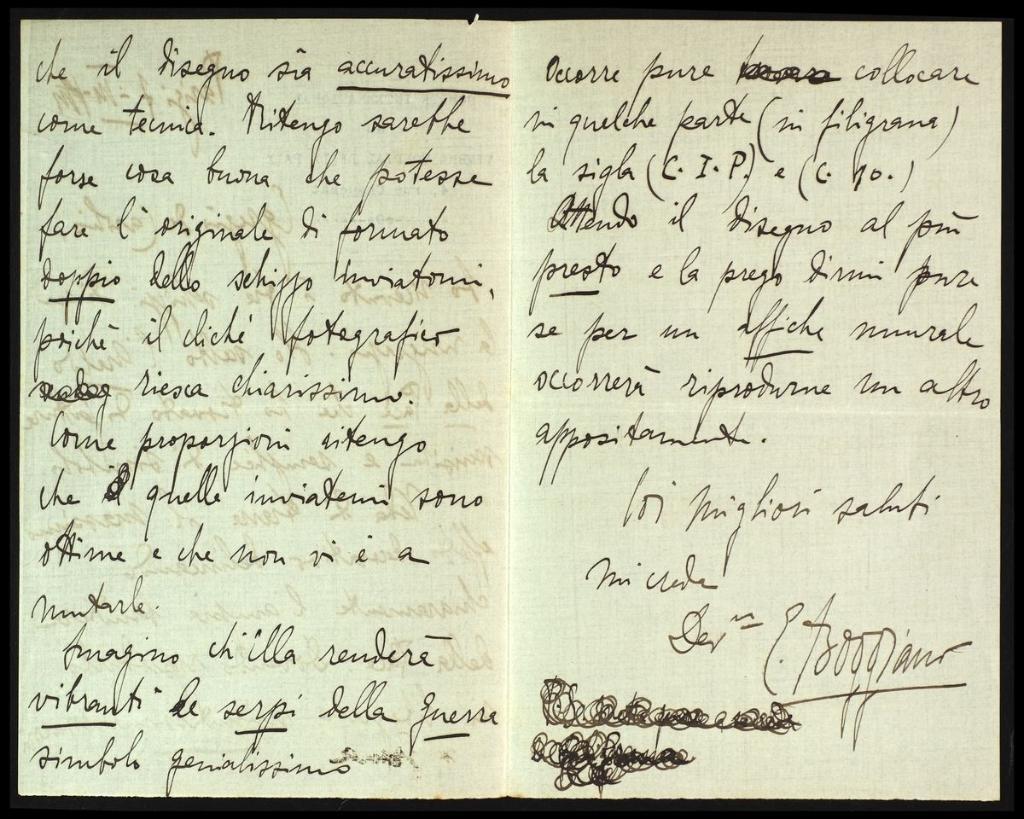 che il disegno sia accuratissimo
come tecnica. Ritengo sarebbe
forse cosa buona che potesse
fare l'originale di formato
doppio dello schizzo inviatomi,
poichè il clichè fotografico
riesca chiarissimo.
Come proporzioni ritengo
che quelle inviatemi sono
ottime e che non vi è a
mutarle.
Imagino ch'Ella renderà
vibranti le serpi della guerra
simbolo genialissimo
Occorre pure collocare
in quelche parte (in filigrana)
la sigla (C. I. P.) e (C. 10.)
Attendo il disegno al più
presto e la prego dirmi pure
se per un affiche murale
occorrerà riprodurne un altro
appositamente.
Coi migliori saluti
mi creda
Dev.mo E. Boggiano